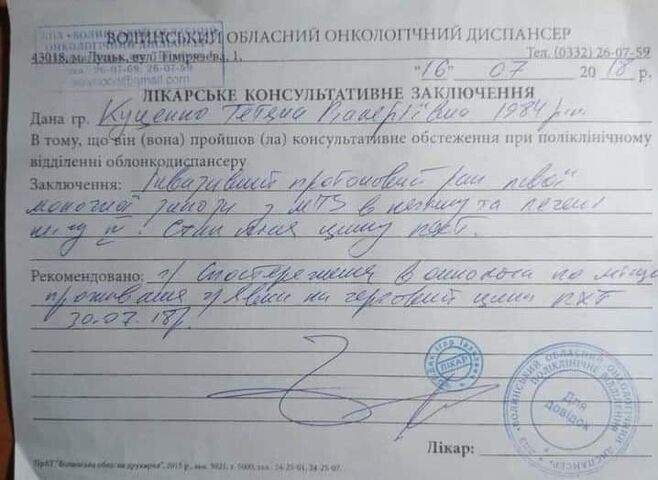 ВОЛИНСЬКИЙ ОБЛАСНИЙ ОНКОЛОГІЧНИЙ ДИСПАНСЕР
43018, м. Луцьк, вул. Тімірязєва, 1. Тел. (0332) 26-07-59
"16" 07 2018 р.
ЛІКАРСЬКЕ КОНСУЛЬТАТИВНЕ ЗАКЛЮЧЕННЯ
Дана гр. Куценко Тетяна Валеріївна 1984 р.н.
В тому, що він (вона) пройшов (ла) консультативне обстеження при поліклінічному
відділенні облонкодиспансеру
Заключення: Інвазивний протоковий рак лівої
молочної залози з MTS в печінку та легені
Стан після циклу ПХТ.
Рекомендовано: 1) Спостереження в онколога по місцю
проживання 2) Явка на черговий цикл ПХТ
30.07.18р.
ЛІКАР
ВОЛИНСЬКИЙ ОБЛАСНИЙ ОНКОЛОГІЧНИЙ ДИСПАНСЕР
ПОЛІКЛІНІЧНЕ ВІДДІЛЕННЯ
Для
довідок
Лікар:
2015 р., зам. 5021, т. 5000, тел. 24-25-01, 24-25-07.